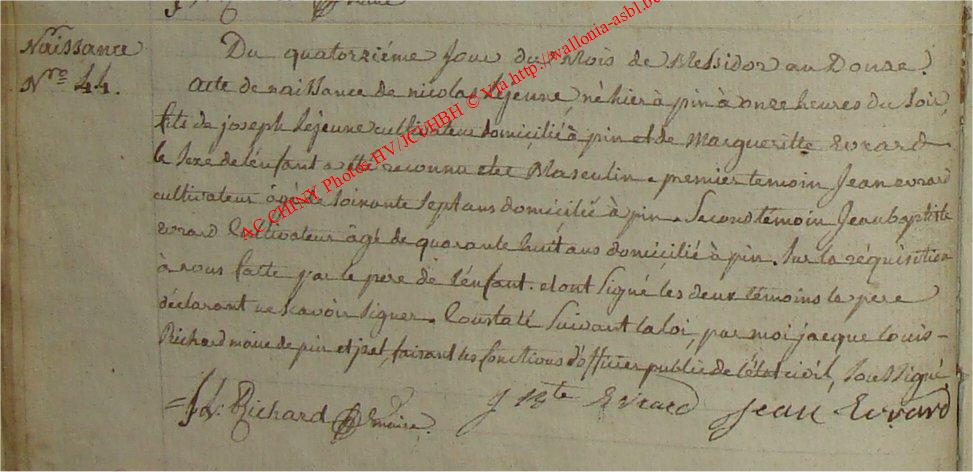 Naissance
Nro 44.
Du quatorziéme Jour du Mois de Messidor an Douze.
Acte de naissance de nicolas Lejeune, né hier à pin à onze heures du soir,
fils de joseph Lejeune cultivateur domicilié à pin et de Margueritte Evrard
le Sexe de l'enfant a été reconnu etre Masculin. premier temoin Jean evrard
cultivateur agé de soixante Sept ans domicilié à pin. Second témoin Jean baptiste
evrard Cultivateur âgé de quarante huit ans domicilié à pin. Sur la réquisition
à nous faite par le pere de l'enfant. et ont Signé les deux témoins le pere
déclarant ne Scavoir Signer. Constaté Suivant la loi, par moi jacque Louis
Richard maire de pin et izel, faisant les fonctions d'officier public de l'état civil, Soussigné
J L: Richard maire.
J Bte Evrard
Jean Evrard
ACCHINY Photos HV/JCUHBH © Via http://wallonia-asbl.be